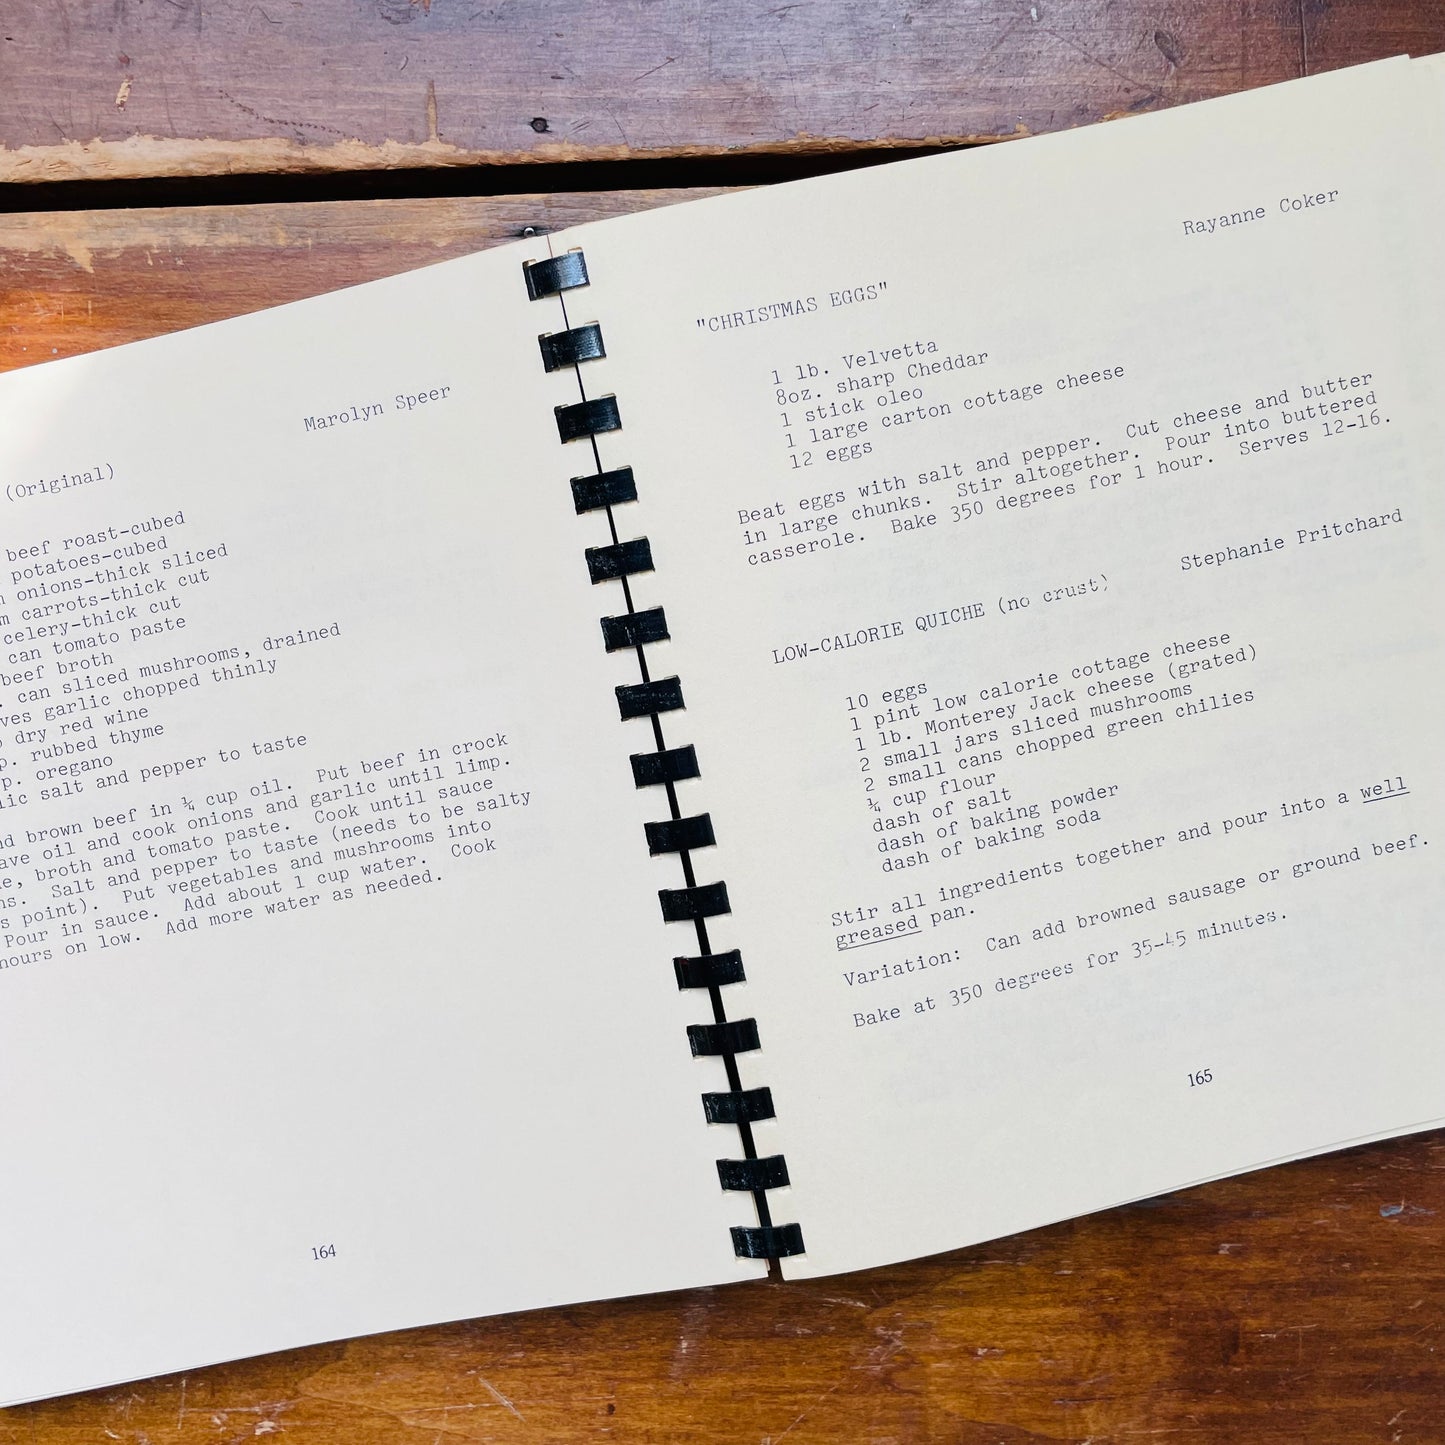 Marolyn Speer
(Original)
beef roast-cubed
potatoes-cubed
onions-thick sliced
carrots-thick cut
celery-thick cut
can tomato paste
beef broth
can sliced mushrooms, drained
garlic chopped thinly
dry red wine
rubbed thyme
oregano
salt and pepper to taste
brown beef in ¼ cup oil. Put beef in crock
oil and cook onions and garlic until limp.
broth and tomato paste. Cook until sauce
Salt and pepper to taste (needs to be salty
point). Put vegetables and mushrooms into
Pour in sauce. Add about 1 cup water. Cook
hours on low. Add more water as needed.
164
Rayanne Coker
"CHRISTMAS EGGS"
1 lb. Velvetta
8oz. sharp Cheddar
1 stick oleo
1 large carton cottage cheese
12 eggs
Beat eggs with salt and pepper. Cut cheese and butter
in large chunks. Stir altogether. Pour into buttered
casserole. Bake 350 degrees for 1 hour. Serves 12-16.
Stephanie Pritchard
LOW-CALORIE QUICHE (no crust)
10 eggs
1 pint low calorie cottage cheese
1 lb. Monterey Jack cheese (grated)
2 small jars sliced mushrooms
2 small cans chopped green chilies
¼ cup flour
dash of salt
dash of baking powder
dash of baking soda
Stir all ingredients together and pour into a well
greased pan.
Variation: Can add browned sausage or ground beef.
Bake at 350 degrees for 35-45 minutes.
165